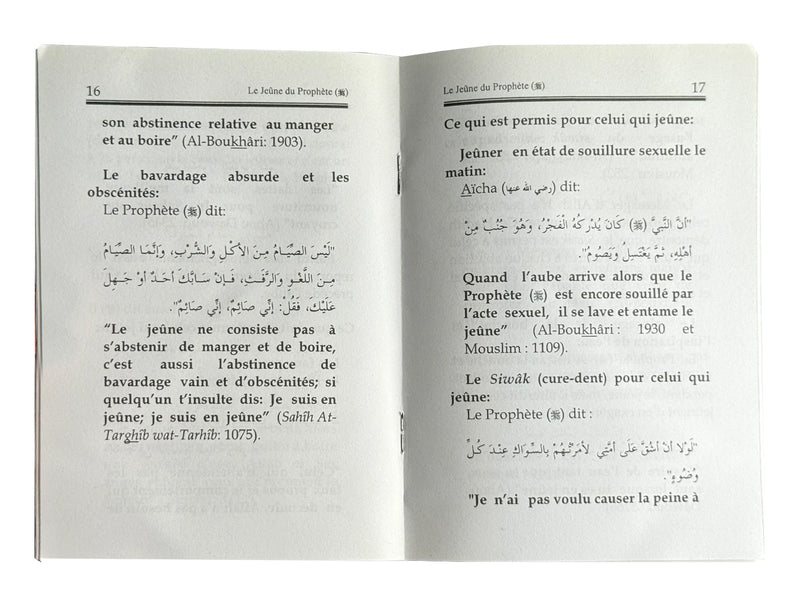 16
Le Jeûne du Prophète (ﷺ)
son abstinence relative au manger
et au boire” (Al-Boukhâri: 1903).
Le bavardage absurde et les
obscénités:
Le Prophète (ﷺ) dit:
"لَيْسَ الصِّيَامُ مِنَ الأَكْلِ وَالشُّرْبِ، وَإِنَّمَا الصِّيَامُ
مِنَ اللَّغْوِ وَالرَّفَثِ، فَإِنْ سَابَّكَ أَحَدٌ أَوْ جَهِلَ
عَلَيْكَ، فَقُلْ: إِنِّي صَائِمٌ، إِنِّي صَائِمٌ".
“Le jeûne ne consiste pas à
s’abstenir de manger et de boire,
c’est aussi l’abstinence de
bavardage vain et d’obscénités; si
quelqu’un t’insulte dis: Je suis en
jeûne; je suis en jeûne” (Sahîh At-
Targhîb wat-Tarhîb: 1075).
Le Jeûne du Prophète (ﷺ)
17
Ce qui est permis pour celui qui jeûne:
Jeûner en état de souillure sexuelle le
matin:
Aïcha (رضي الله عنها) dit:
"أَنَّ النَّبِيَّ (ﷺ) كَانَ يُدْرِكُهُ الْفَجْرُ، وَهُوَ جُنُبٌ مِنْ
أَهْلِهِ، ثُمَّ يَغْتَسِلُ وَيَصُومُ".
Quand l’aube arrive alors que le
Prophète (ﷺ) est encore souillé par
l’acte sexuel, il se lave et entame le
jeûne” (Al-Boukhâri : 1930 et
Mouslim : 1109).
Le Siwâk (cure-dent) pour celui qui
jeûne:
Le Prophète (ﷺ) dit :
"لَوْلَا أَنْ أَشُقَّ عَلَى أُمَّتِي لأَمَرْتُهُمْ بِالسِّوَاكِ عِنْدَ كُلِّ
وُضُوءٍ".
"Je n’ai pas voulu causer la peine à